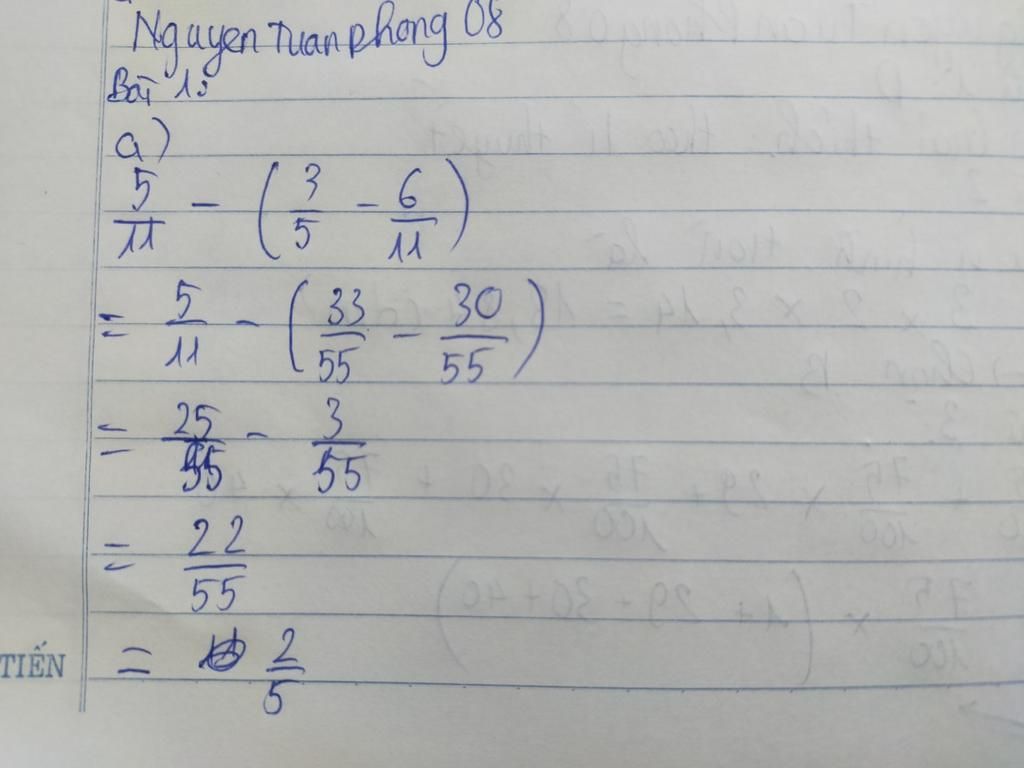 Nguyen Tuan phong 08
Bài 1:
a)
5/11 - (3/5 - 6/11)
= 5/11 - (33/55 - 30/55)
= 25/55 - 3/55
= 22/55
TIẾN = 2/5